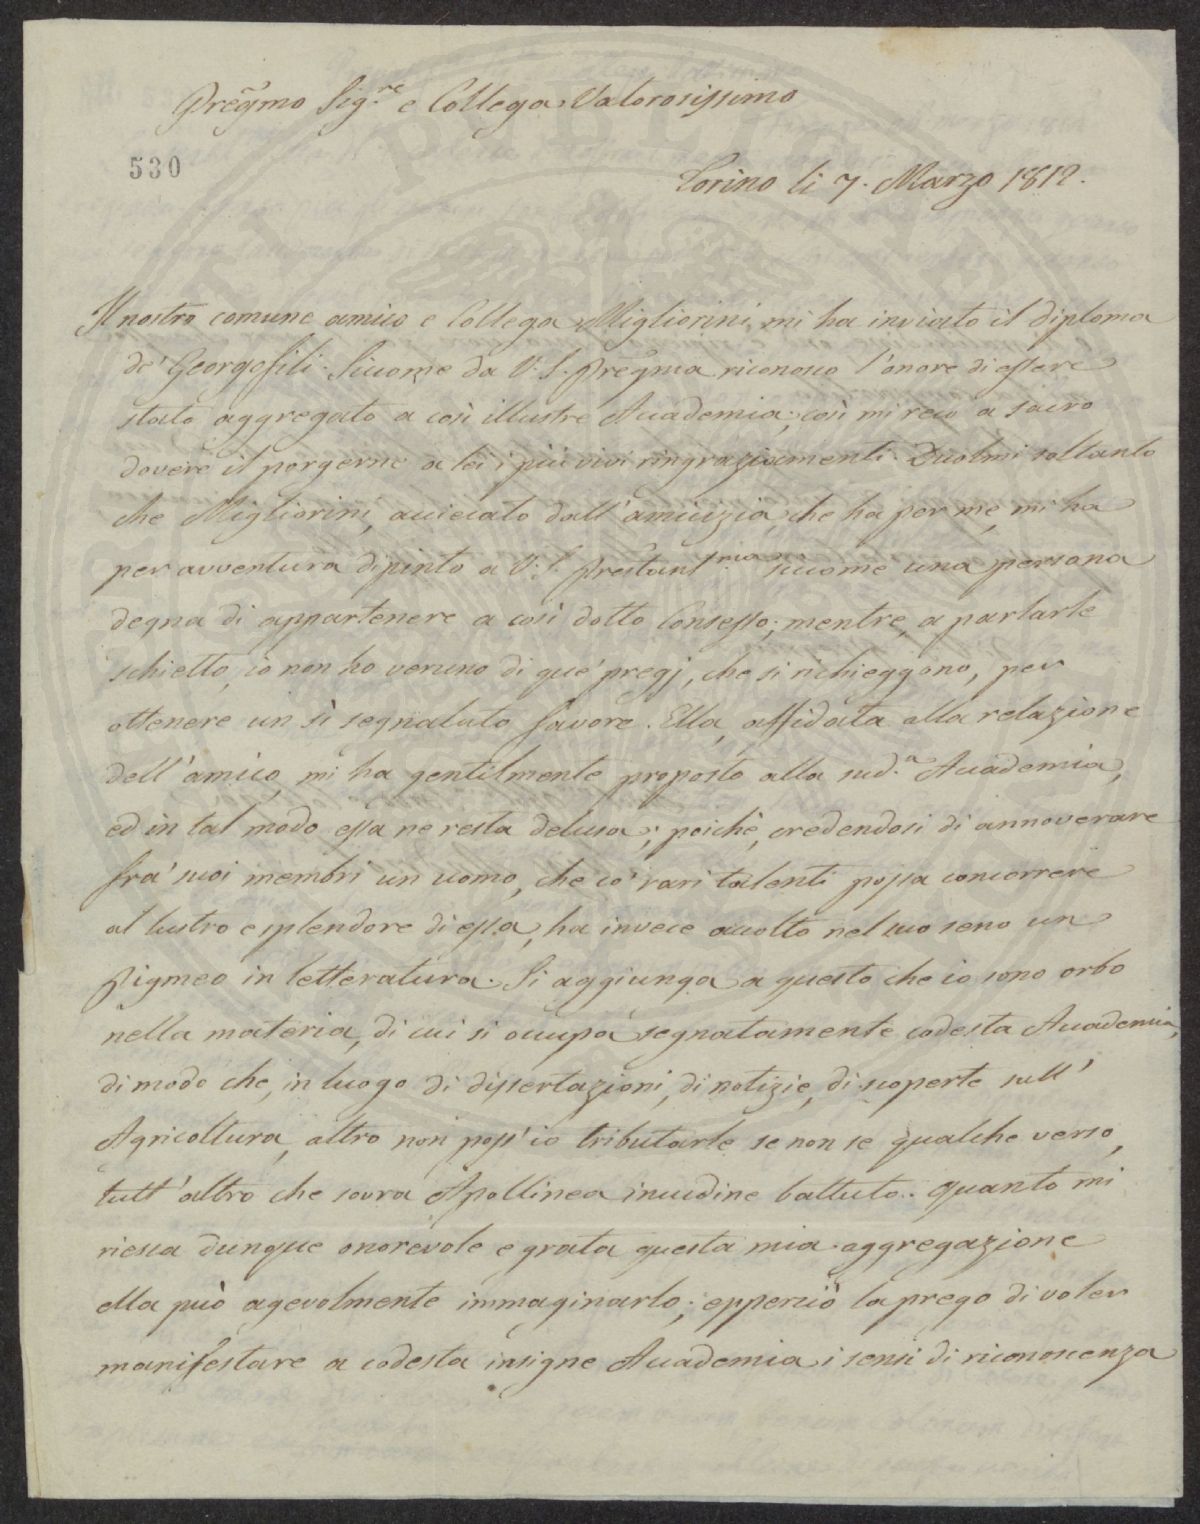 Preg̃mo Sig.re e Collega Valorosissimo
530
Torino li 7. Marzo 1812.
Il nostro comune amico e Collega Migliorini mi ha inviato il diploma
de' Georgofili. Siccome da V. S. Preg̃ma riconosco l'onore di essere
stato aggregato a così illustre Accademia, così mi reco a sacro
dovere il porgerne a lei i più vivi ringraziamenti. Duolmi soltanto
che Migliorini, acciecato dall'amicizia, che ha per me, mi ha
per avventura dipinto a V. S. Prestant.ma siccome una persona
degna di appartenere a così dotto Consesso; mentre, a parlarle
schietto, io non ho veruno di que' pregj, che si richieggono, per
ottenere un sì segnalato favore. Ella, affidata alla relazione
dell'amico, mi ha gentilmente proposto alla sud.a Accademia,
ed in tal modo essa ne resta delusa; poichè, credendosi di annoverare
fra' suoi membri un uomo, che co' rari talenti possa concorrere
al lustro e splendore di essa, ha invece accolto nel suo seno un
Pigmeo in letteratura. Si aggiunga a questo che io sono orbo
nella materia, di cui si occupa segnatamente codesta Accademia,
di modo che, in luogo di dissertazioni, di notizie, di scoperte sull'
Agricoltura, altro non poss'io tributarle se non se qualche verso,
tutt'altro che sovra Apollinea incudine battuto. Quanto mi
riesca dunque onorevole e grata questa mia aggregazione
ella può agevolmente immaginarlo; epperciò la prego di voler
manifestare a codesta insigne Accademia i sensi di riconoscenza